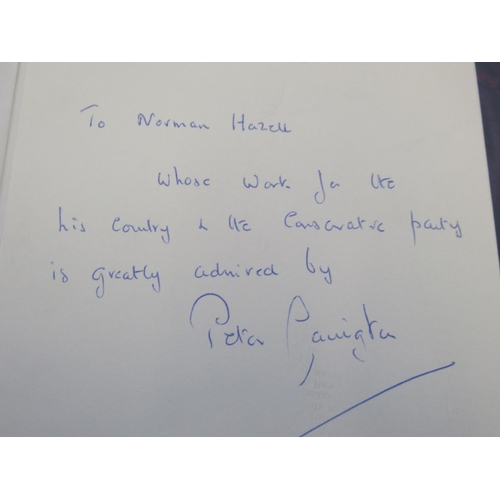 To Norman Hazell
whose work for the
his country & the Conservative party
is greatly admired by
Peter Carrington